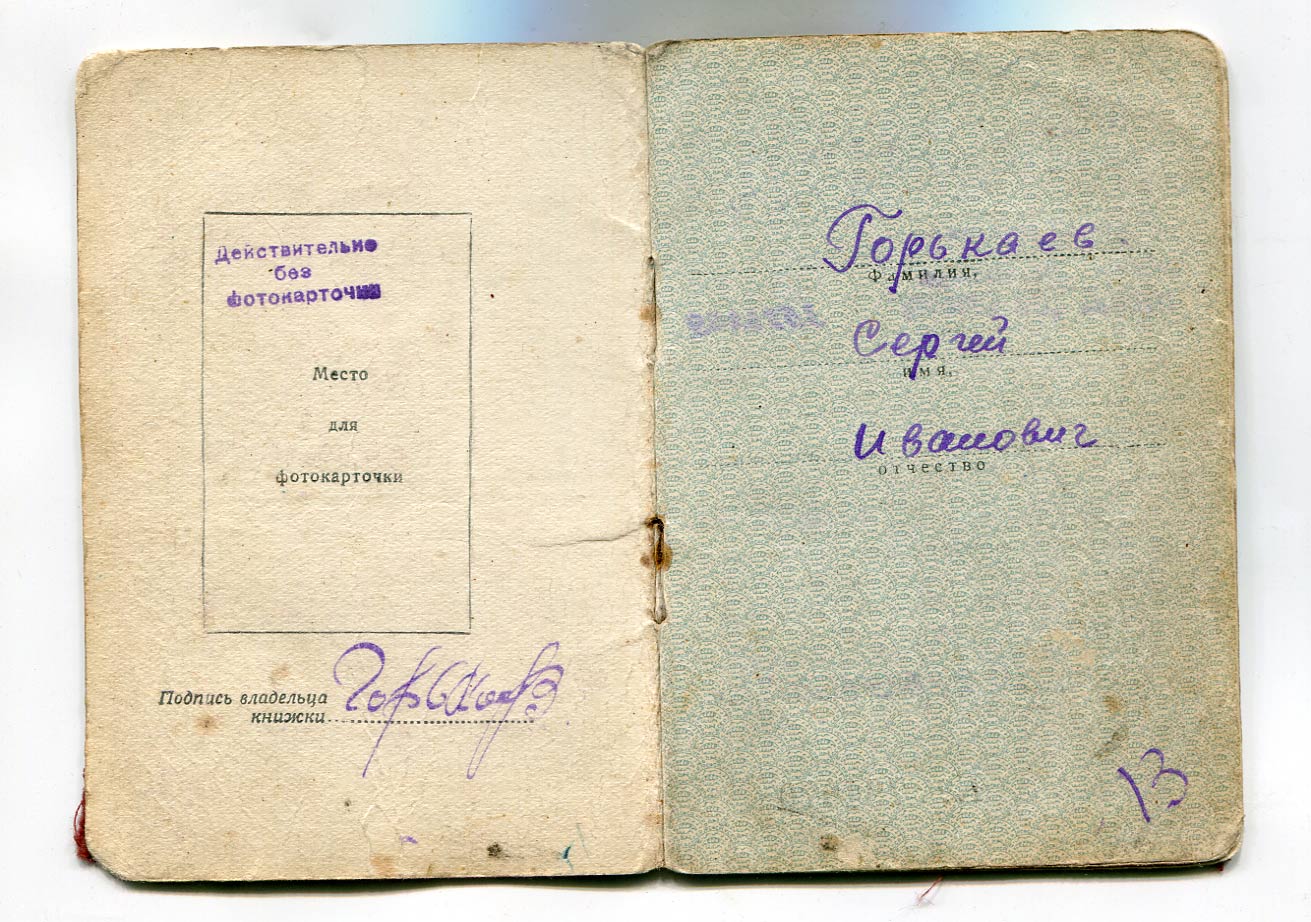 Действительно
без
фотокарточки
Место
для
фотокарточки
Подпись владельца
книжки
Горькаев
Горькаев
фамилия,
Сергей
имя,
Иванович
отчество
13